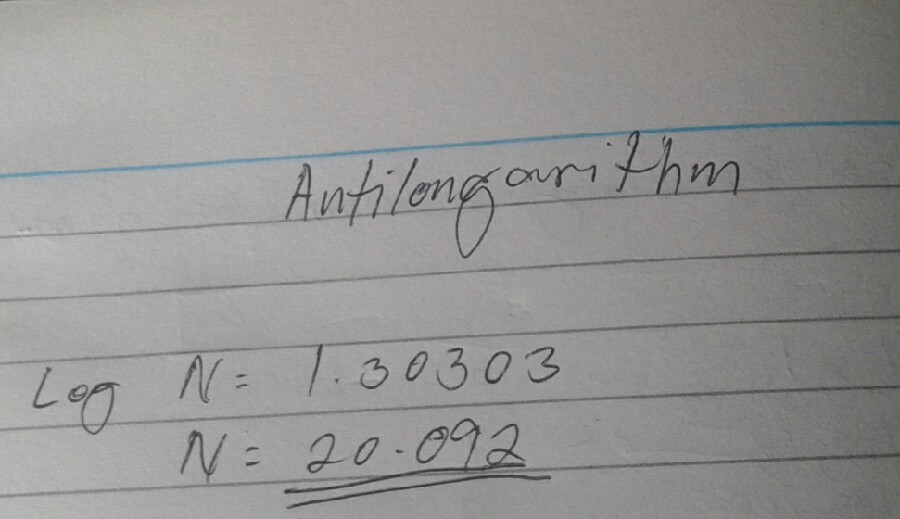 Antilongarithm
Log N = 1.30303
N = 20.092